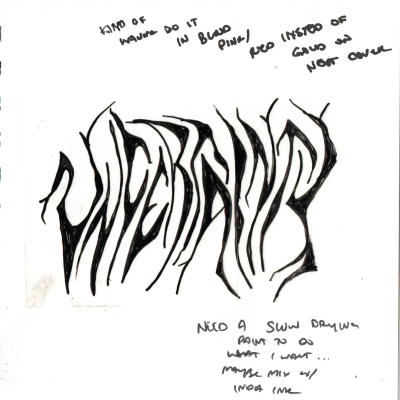 KIND OF
WANNA DO IT
IN BLOOD
PINK/
RED INSTED OF
GOLD ON
NEXT COVER
UNCERTAINTY
NEED A SLOW DRYING
PAINT TO DO
WHAT I WANT...
MAYBE MIX W/
INDIA INK